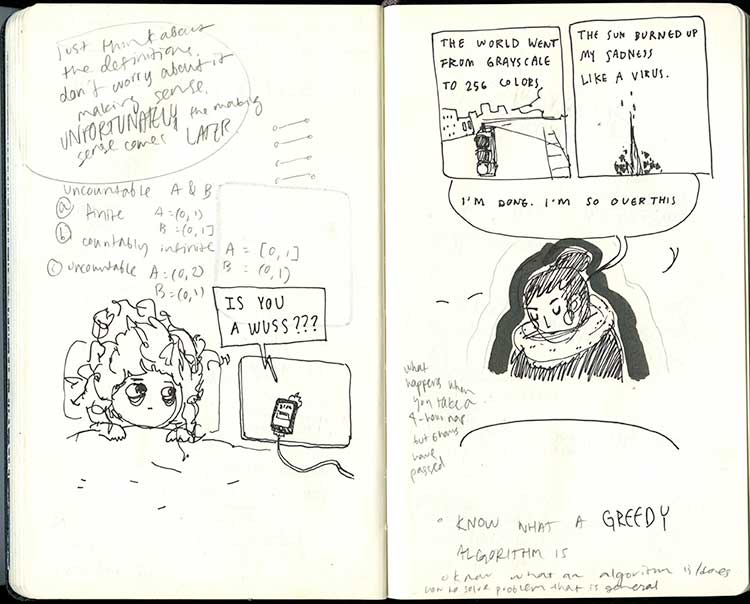 Just think about
the definitions.
don't worry about it
making sense.
UNFORTUNATELY the making
sense comes LATER
uncountable A & B
(a) finite A = (0, 1)
B = (0, 1]
(b) countably infinite A = [0, 1]
B = (0, 1)
(c) uncountable A = (0, 2)
B = (0, 1)
IS YOU
A WUSS???
THE WORLD WENT
FROM GRAYSCALE
TO 256 COLORS
THE SUN BURNED UP
MY SADNESS
LIKE A VIRUS.
I'M DONE. I'M SO OVER THIS
what
happens when
you take a
4-hour nap
but 6 hours
have
passed
KNOW WHAT A GREEDY
ALGORITHM IS
know what an algorithm is/does
how to solve problem that is general